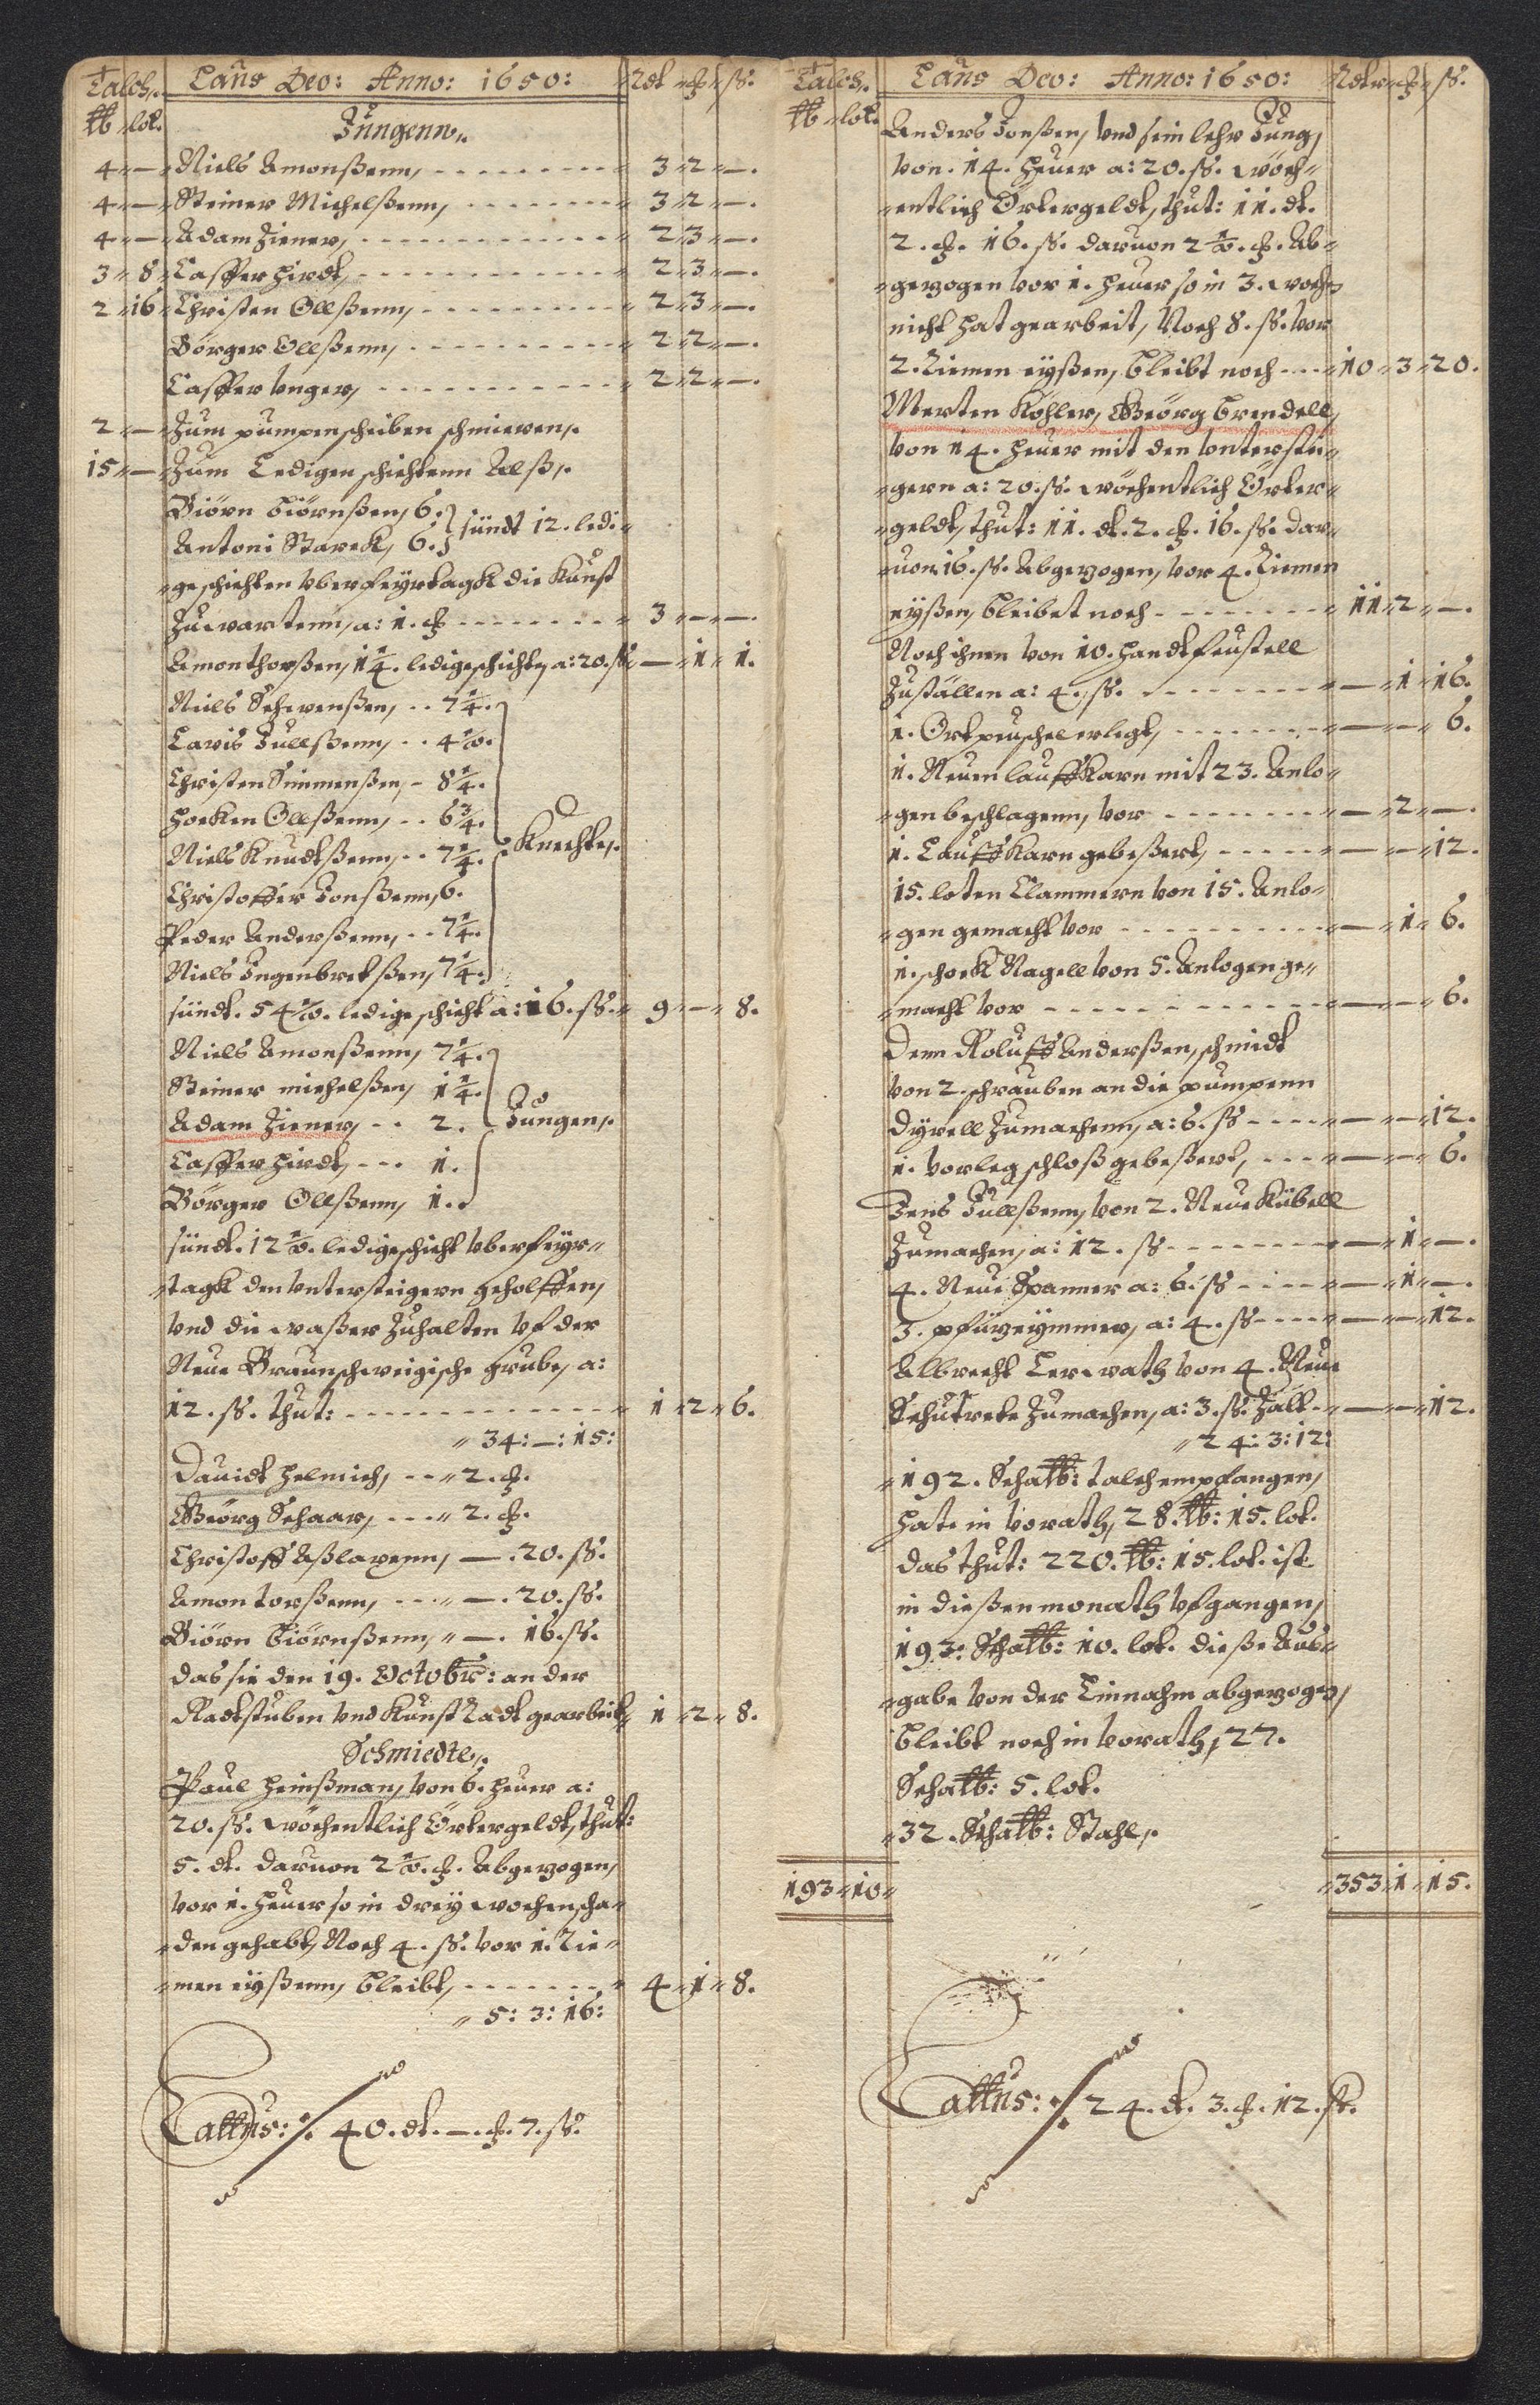 Talch. Laus Deo: Anno: 1650: Rdt ch ß.
℔ lot. Jungenn.
4 — Niels Amonßenn, 3 2 —.
4 — Steiner Michelßenn, 3 2 —.
4 — Adam Ziener, 2 3 —.
3 8 Casper Hirdt, 2 3 —.
2 16 Christen Ollßenn, 2 3 —.
Börger Ollßenn, 2 2 —.
Casper Unger, 2 2 —.
2 — Zum pumpenscheiben schmieren.
15 — Zum Ledigenschichtenn Alß.
Biörn Biörnßen, 6.
Antoni Starck, 6. sündt 12. ledi-
geschichten vber feyrtagk die Kunst
Zuwartenn, a: 1. ch 3 — —.
Amon thorßen, 1 1/4. ledigeschicht, a: 20. ß — 1 1.
Niels Schwenßen, 7 1/4.
Lavis Jullßenn, 4 1/2.
Christen Simmenßen, 8 1/4.
Hocken Ollßenn, 6 3/4.
Niels Knudtßenn, 7 1/4. Knechte.
Christoffer Jonßenn, 6.
Peder Anderßenn, 7 1/4.
Niels Ingenbretßen, 7 1/4.
sündt. 54 1/2. ledigeschicht a: 16. ß. 9 — 8.
Niels Amonßenn, 7 1/4.
Steiner michelßen, 1 1/4.
Adam Ziener, 2. Jungen.
Casper Hirdt, 1.
Börger Ollßenn, 1.
sündt. 12 1/2. ledigeschicht vber feyr-
tagk den vntersteigern geholffen,
vnd die waßer Zuhalten vf der
Neue Braunschweigische grube, a:
12. ß. thut: 1 2 6.
34: —: 15:
Dauidt Helmich, 2. ch.
Geörg Schaar, 2. ch.
Christoff Aßlavenn, —. 20. ß.
Amon torßenn, —. 20. ß.
Biörn Biörnßenn, —. 16. ß.
das sie den 19. Octobr: an der
Radtstuben vnd Kunst Radt gearbeit 1 2 8.
Schmiedte.
Paul Heinßman, von 6. Heuer a:
20. ß. wöchentlich Örtergeldt, thut:
5. dt. daruon 2 1/2. ch. Abgezogen,
vor 1. Heuer so in drey wochen scha-
den gehabt, Noch 4. ß. vor 1. Rie-
men eyßenn, bleibt, 4 1 8.
5: 3: 16:
Lattus: ./. 40. dt. —. ch. 7. ß.
Talch. Laus Deo: Anno: 1650: Rdt ch ß.
℔ lot.
Anders Jonßen, vnd sein lehr Jung,
von. 14. Heuer a: 20. ß. wöch-
entlich Örtergeldt, thut: 11. dt.
2. ch. 16. ß. daruon 2 1/2. ch. Ab-
gezogen vor 1. Heuer so in 3. wochen
nicht hat gearbeit, Noch 8. ß. vor
2. Riemen eyßen, bleibt noch 10 3 20.
Merten Köhler, Geörg Brendell,
von 14. Heuer mit den vnterstei-
gern a: 20. ß. wöchentlich Örter-
geldt, thut: 11. dt. 2. ch. 16. ß. dar-
uon 16. ß. Abgezogen, vor 4. Riemen
eyßen, bleibet noch 11 2 —.
Noch ihnen von 10. Handtfeustell
Zuställen a: 4. ß. — 1 16.
1. Ortpeuschel erlegt, — — 6.
1. Neuen lauffkarn mit 23. Anlo-
gen beschlagenn, vor — 2 —.
1. Lauffkarn gebeßert, — — 12.
15. loten Clammern von 15. Anlo-
gen gemacht vor — 1 6.
1. schock Nagell von 5. Anlogen ge-
macht vor — — 6.
Denn Roluff Anderßen, schmidt
von 2. schrauben an die pumpenn
dyrell Zumachenn, a: 6. ß — — 12.
1. vorlegschloß gebeßert, — — 6.
Jens Jullßenn, von 2. Neue Kübell
Zumachen, a: 12. ß — 1 —.
4. Neue Spanner a: 6. ß — 1 —.
3. pfüzeymmer, a: 4. ß — — 12.
Albrecht Lerwath von 4. Neue
Schutrete Zumachen, a: 3. ß. Zalt — — 12.
24: 3: 12:
192. Scha℔: talch empfangen,
Hat. in vorath, 28. ℔: 15. lot.
das thut: 220. ℔: 15. lot. ist
in dießen monath vfgangen,
193: Scha℔: 10. lot. dieße Aus-
gabe von der Einnahm abgezogen,
bleibt noch in vorath, 27.
Scha℔: 5. lot.
32. Scha℔: Stahl.
193 10 353 1 15.
Lattus: ./. 24. dt. 3. ch. 12. ß.